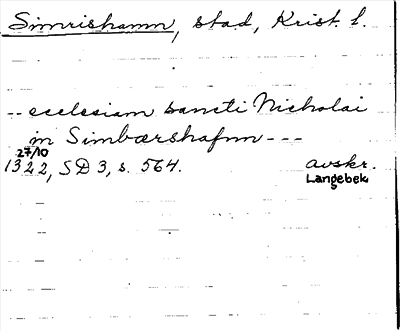 Simrishamn, stad, Krist. l.
-- ecclesiam sancti Nicholai
in Simbærshafnn ---
27/10
1322, SD 3, s. 564. avskr.
Langebek